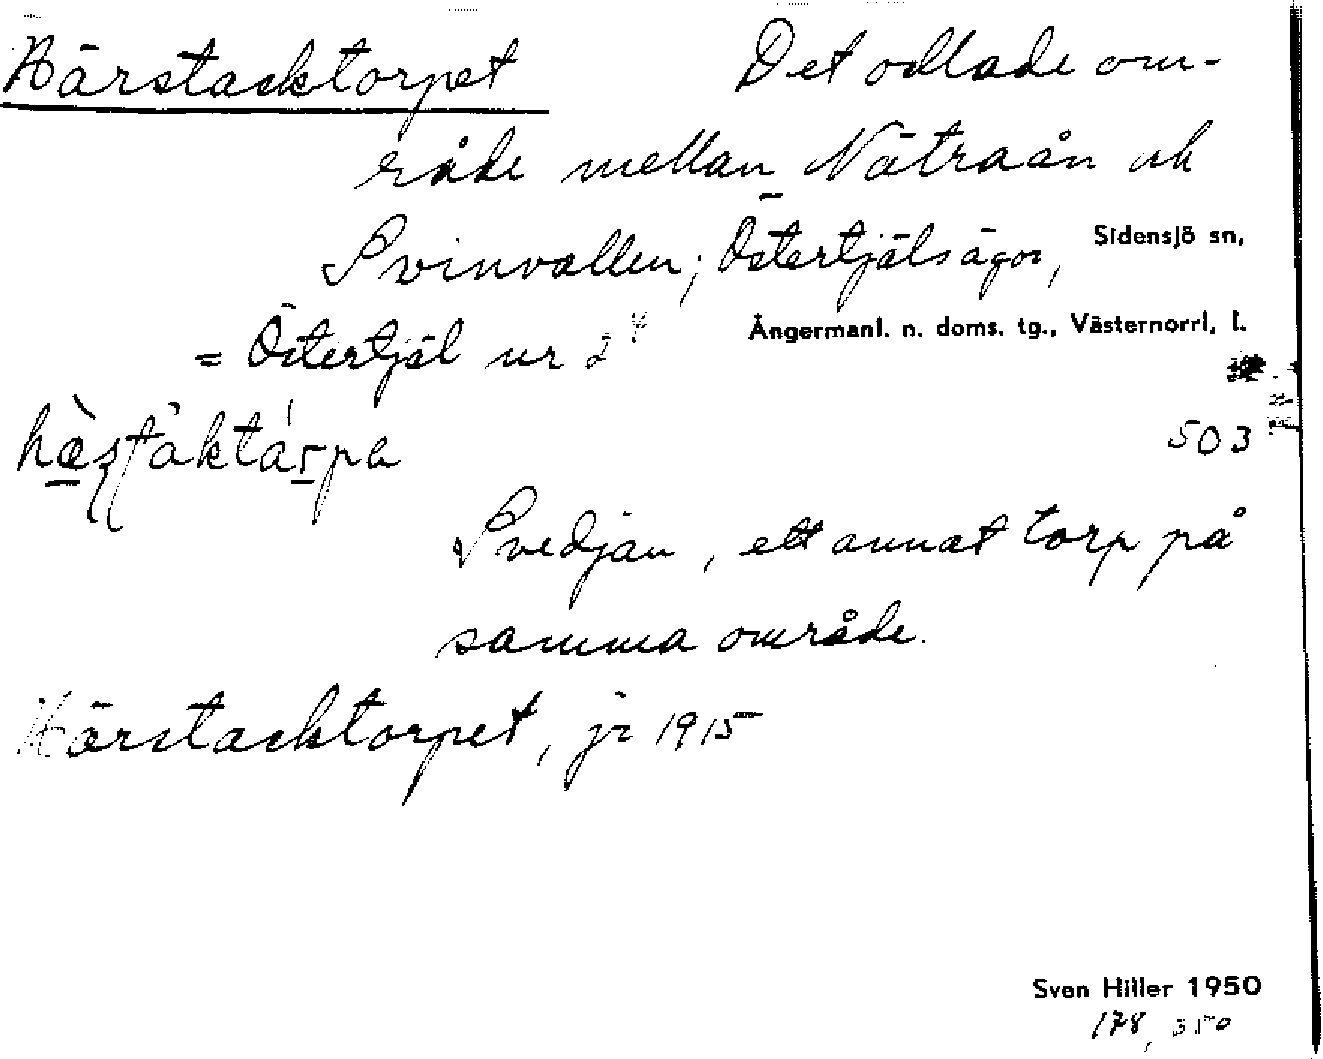 Härstacktorpet Det odlade om-
råde mellan Nätraån och
Svinvallen; Östertjäls ägor, Sidensjö sn,
= Östertjäl ur 2⁴ Ångermanl. n. doms. tg., Västernorrl. l.
503
Svedjan, ett annat torp på
samma område.
Härstacktorpet, jr 1915
Sven Hiller 1950
178, 350